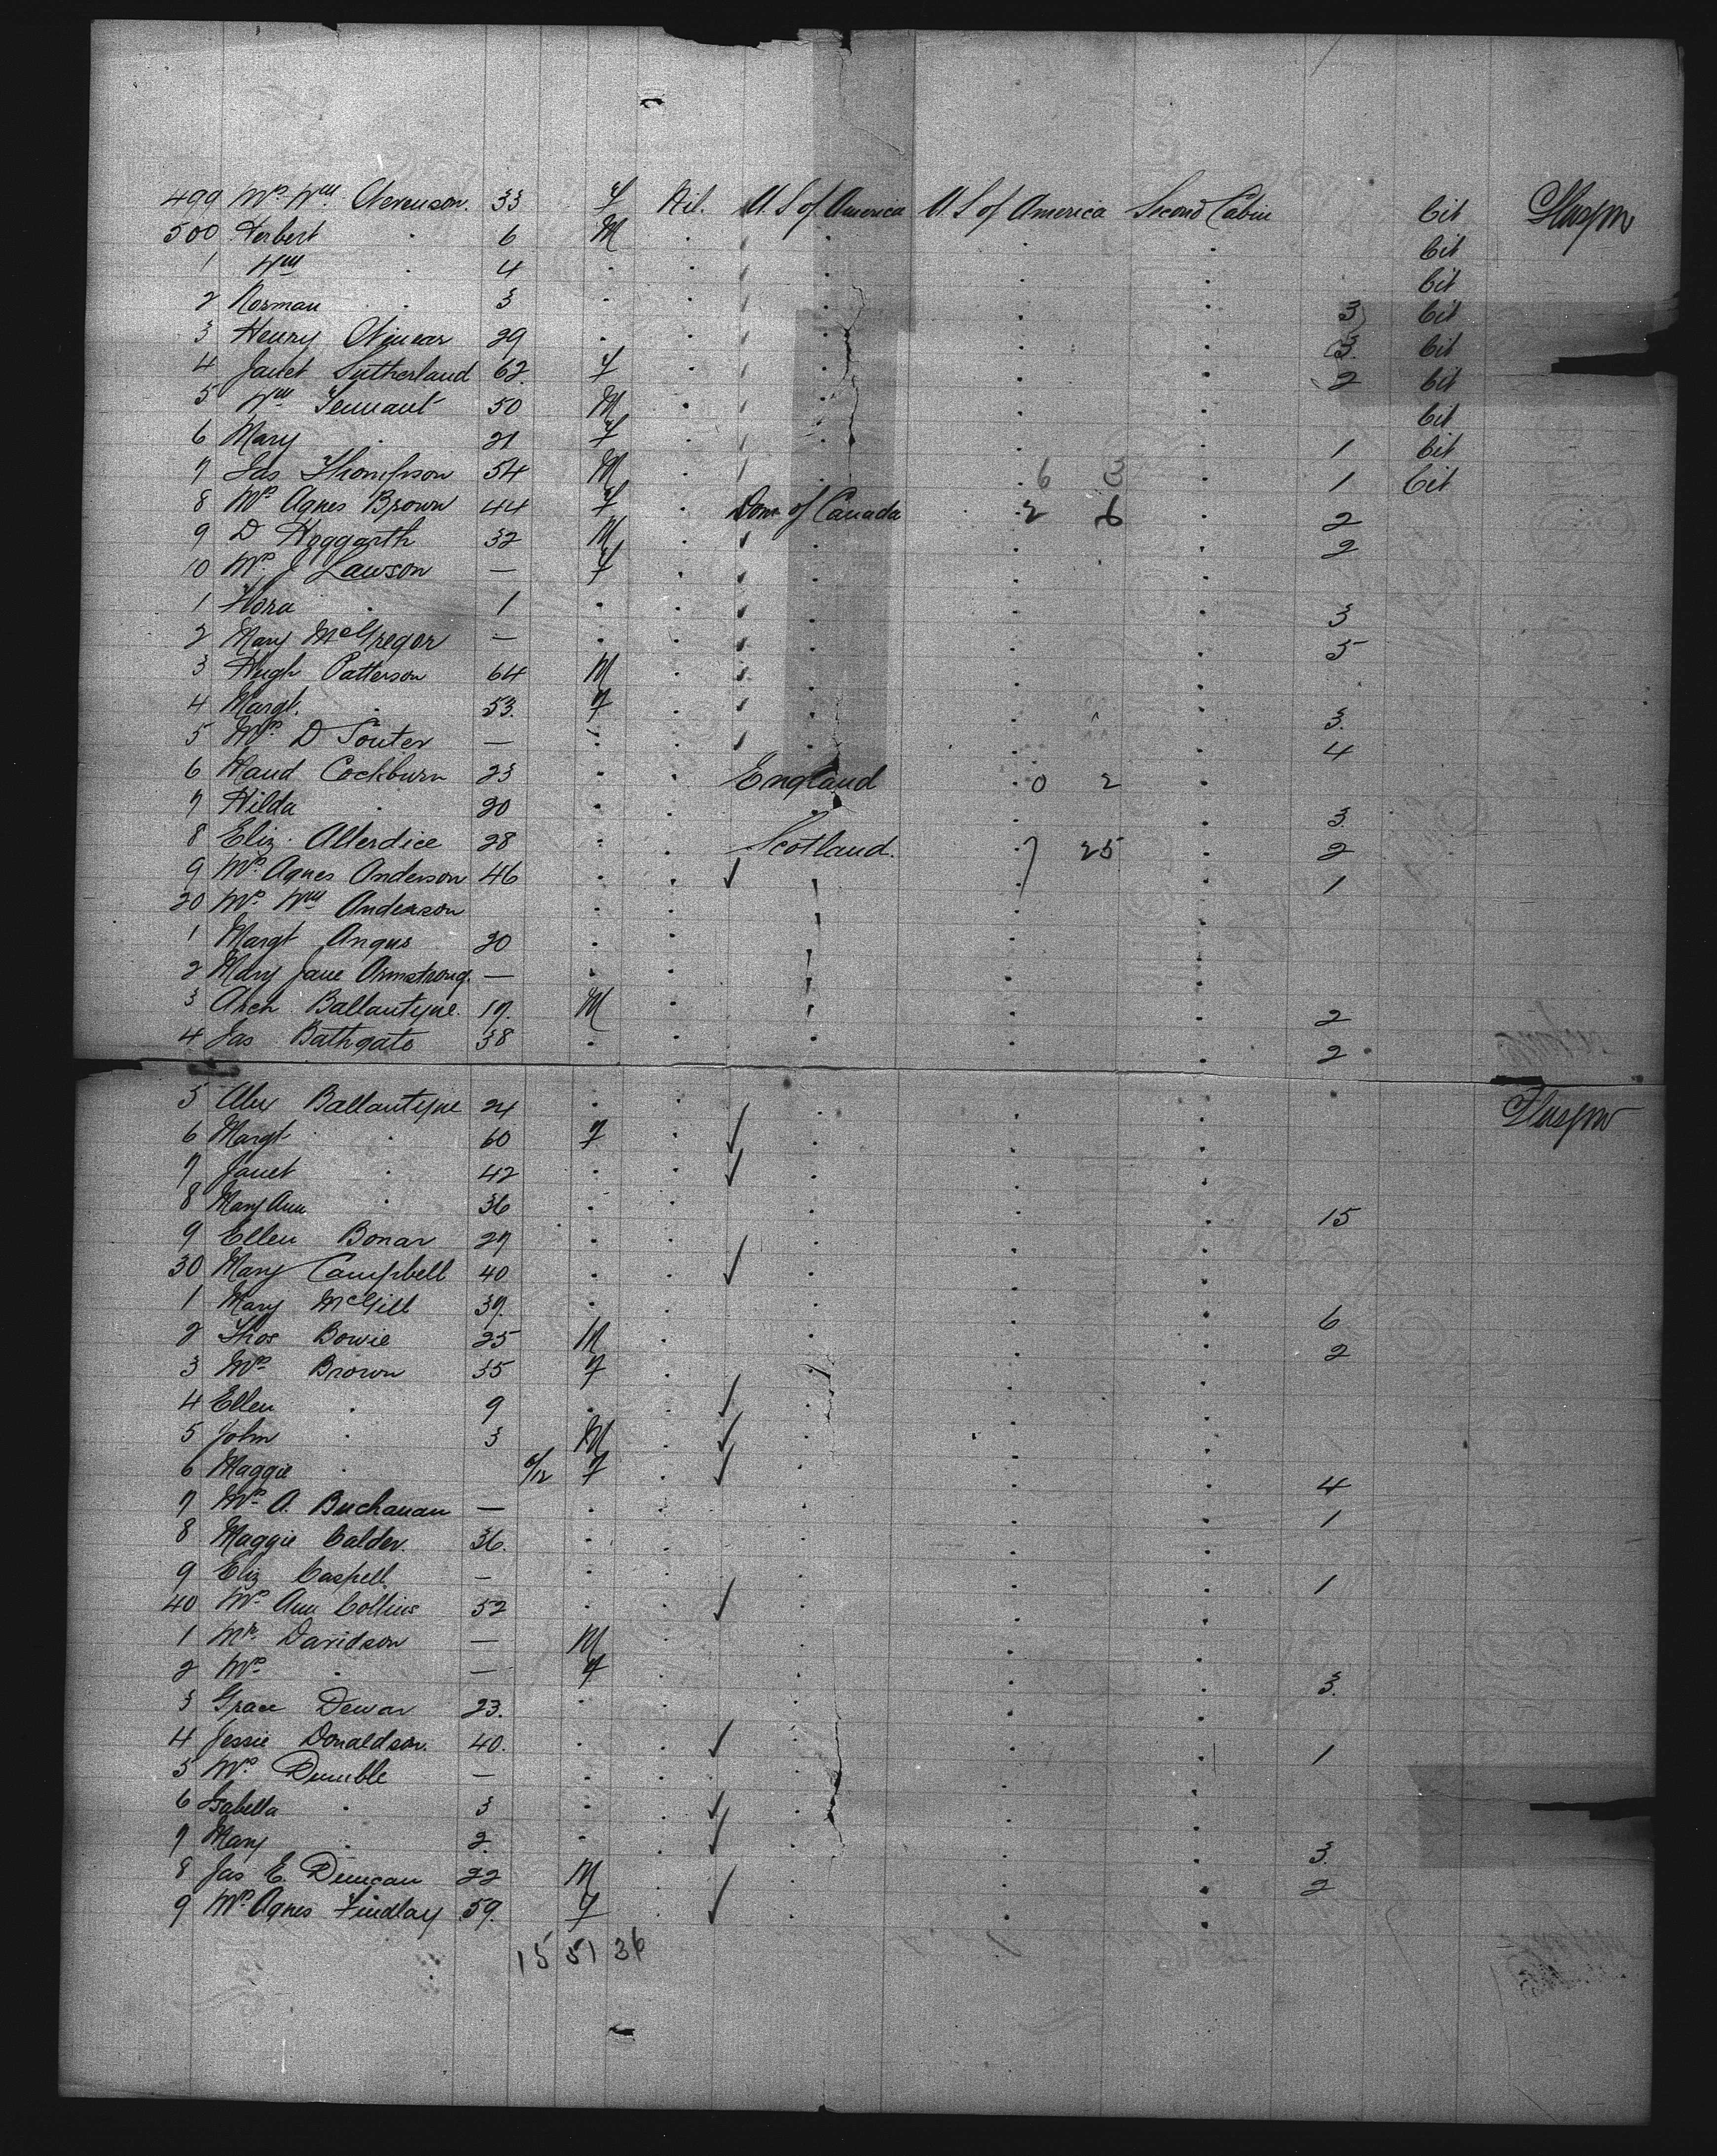 499 Mrs Wm Stevenson. 33 F Nil. U.S of America U.S of America Second Cabin Cit Glasgow
500 Herbert . 6 M . . . . Cit
1 Wm . 4 . . . . . Cit
2 Norman . . 3 . . . . . 3 Cit
3 Henry 29 . . . . . 3. Cit
4 Janet Sutherland 62. F . . . . 2 Cit
5 Wm Tennant 50 M . . . . Cit
6 Mary . 21 F . . . . 1 Cit
7 Jas Thompson 54 M . . . 6 3 . 1 Cit
8 Mrs Agnes Brown 44 F . Dom of Canada . 2 6 . 2
9 D Hoggarth 32 M . . . . 2
10 Mrs J Lawson — F . . . .
1 Flora . 1 . . . . . 3
2 Mary McGregor — . . . . . 5
3 Hugh Patterson 64 M . . . .
4 Margt. . 53. F . . . . 3.
5 Mrs D Souter — . . . . . 4
6 Maud Cockburn 23 . . England . 0 2 .
7 Hilda . 20 . . . . . 3.
8 Eliz. Allerdice 28 . . Scotland. . 7 25 . 2
9 Mrs Agnes Anderson 46 . . . . . 1
20 Mrs Wm Anderson . . . . .
1 Margt Angus 20 . . . . .
2 Mary Jane Armstrong. — . . . . .
3 Arch Ballantyne. 17. M . . . . 2
4 Jas Bathgate 38 . . . . . 2
5 Alex Ballantyne 24 . . . . . Glasgow
6 Margt . 60 F . . . .
7 Janet . 42 . . . . .
8 Mary Ann . 36 . . . . . 15
9 Ellen Bonar 27 . . . . .
30 Mary Campbell 40 . . . . .
1 Mary McGill 37. . . . . . 6
2 Thos Bowie 25 M . . . . 2
3 Mrs Brown 35 F . . . .
4 Ellen . 9 . . . . .
5 John . 3 M . . . .
6 Maggie . /12 F . . . . 4
7 Mrs A. Buchanan — . . . . . 1
8 Maggie Calder. 36. . . . . .
9 Eliz Caspell — . . . . . 1
40 Mrs Ann Collins 52 . . . . .
1 Mr. Davidson — M . . . .
2 Mrs . — F . . . . 3.
3 Grace Dewar 23. . . . . .
4 Jessie Donaldson. 40. . . . . . 1
5 Mrs Dumble — . . . . .
6 Isabella . 3 . . . . .
7 Mary . 2. . . . . . 3.
8 Jas E. Duncan 22 M . . . . 2
9 Mrs Agnes Findlay 59. F . . . .
15 51 36